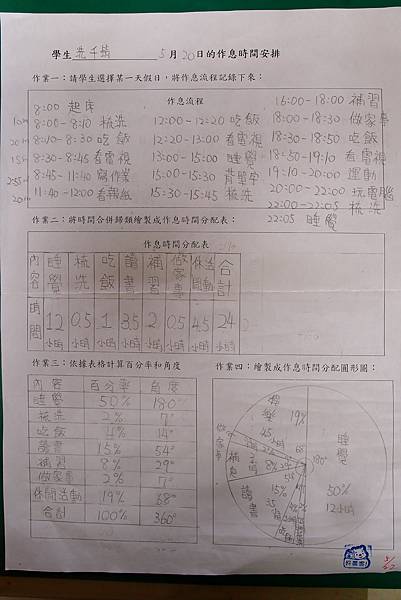 學生 5月20日的作息時間安排
作業一：請學生選擇某一天假日，將作息流程記錄下來：
作息流程
8:00 起床
8:00-8:10 梳洗
8:10-8:30 吃飯
8:30-8:45 看電視
8:45-11:40 寫作業
11:40-12:00 看報紙
12:00-12:20 吃飯
12:20-13:00 看電視
13:00-15:00 睡覺
15:00-15:30 背單字
15:30-15:45 梳洗
16:00-18:00 補習
18:00-18:30 做家事
18:30-18:50 吃飯
18:50-19:10 看電視
19:10-20:00 運動
20:00-22:00 玩電腦
22:00-22:05 梳洗
22:05 睡覺
作業二：將時間合併歸類繪製成作息時間分配表：
作息時間分配表
內容 睡覺 梳洗 吃飯 讀書 補習 做家事 休閒活動 合計
時間 12小時 0.5小時 1小時 3.5小時 2小時 0.5小時 4.5小時 24小時
作業三：依據表格計算百分率和角度
內容 百分率 角度
睡覺 50% 180°
梳洗 2% 7°
吃飯 4% 14°
讀書 15% 54°
補習 8% 29°
做家事 2% 7°
休閒活動 19% 68°
合計 100% 360°
作業四：繪製成作息時間分配圓形圖：
睡覺
180°
50%
12小時
19%
做家事
補習
8%
讀書
15%
3.5